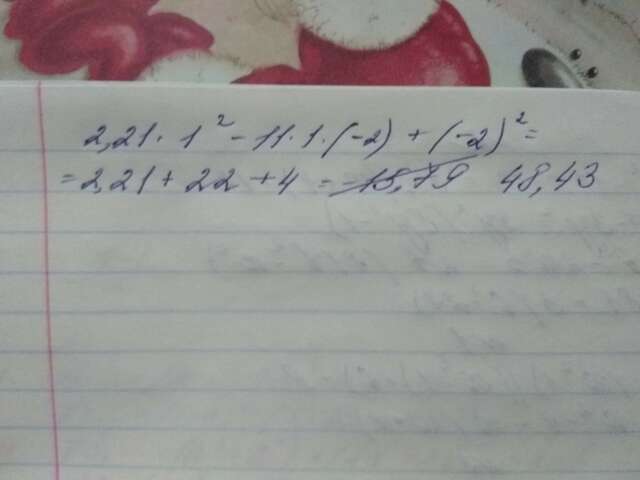 2,21 · 1² - 11 · 1 · (-2) + (-2)² =
= 2,21 + 22 + 4 = -18,79 48,43